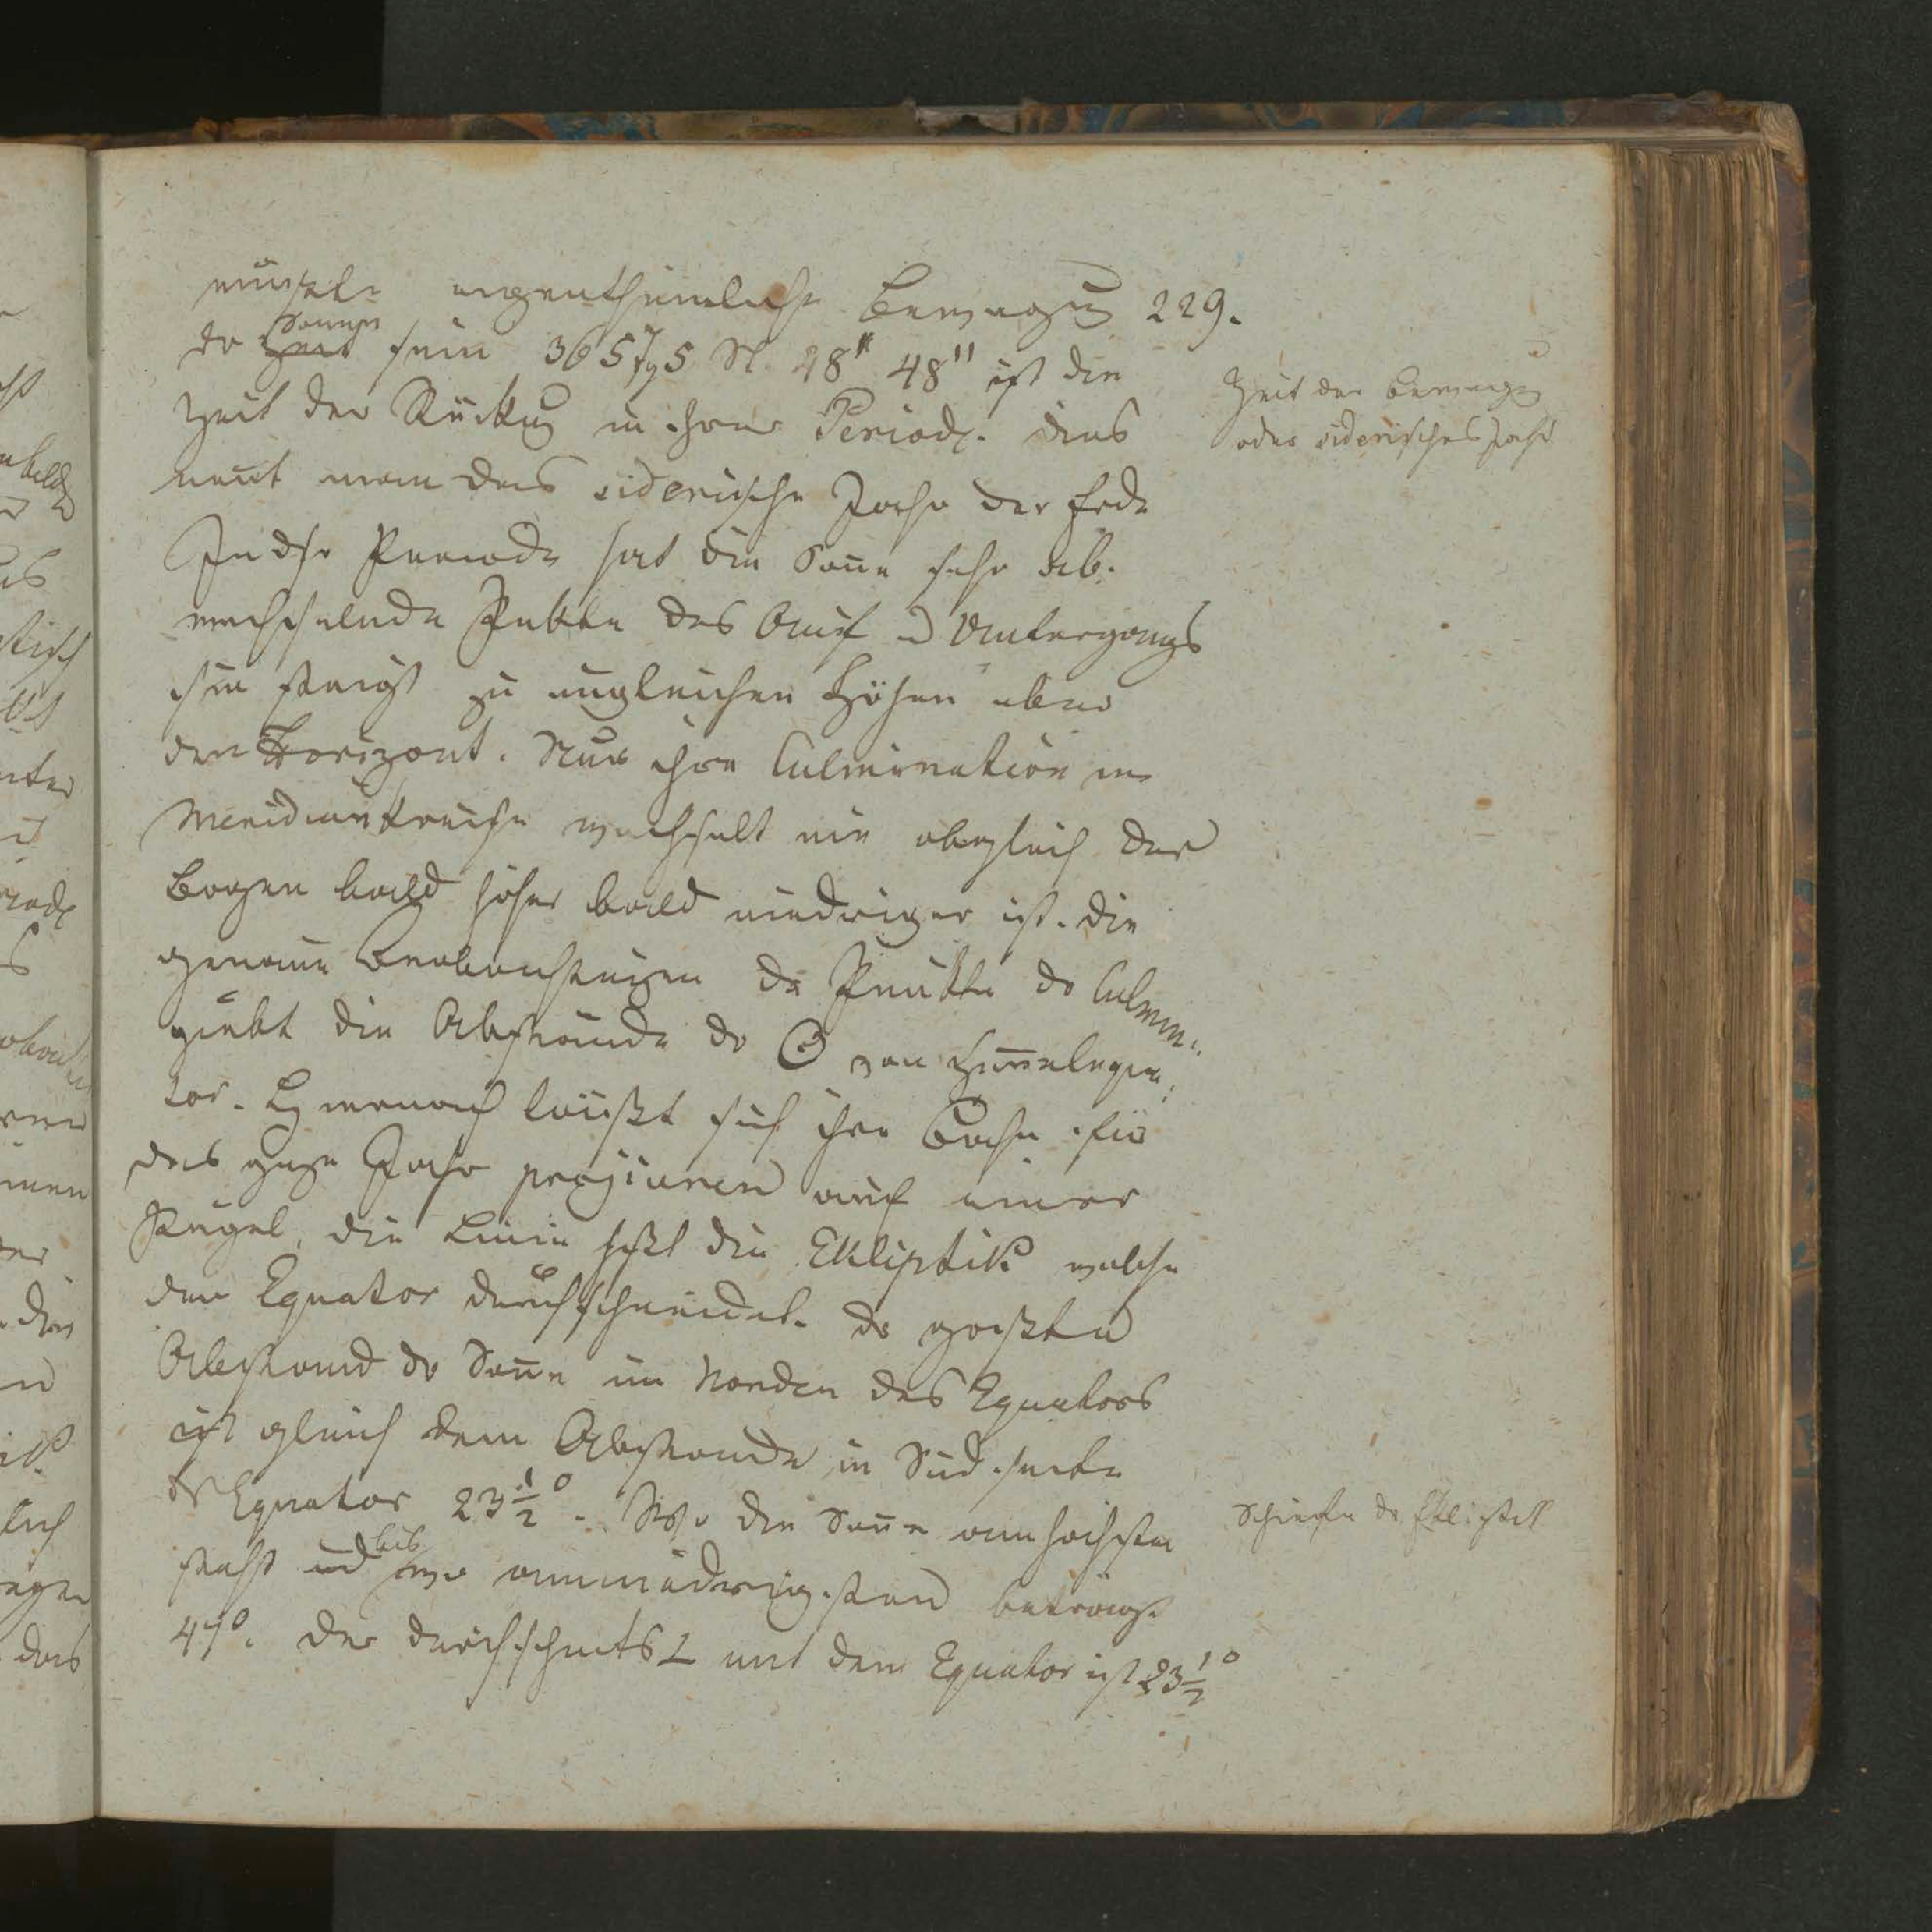 müste eigenthümliche Bewegung 229.
der Sonnen sein 365 Tg 5 St. 48" 48" ist die
Zeit der Rückkug in ihrer Periode. dies
nennt man das siderische Jahr der Erde
In dsr Periode hat die Sonne sehr ab-
wechselnde Pukte des Auf u Untergangs
sie steigt zu ungleichen Höhen über
den Horizont. Nur ihre Culmination im
Meridiankreise wechselt nie obgleich der
Bogen bald höher bald niedriger ist. Die
genaue Beobachtungen der Punkte der Culmin.
giebt die Abstände der ☉ von Himmelequa-
tor. Hiernach läußt sich ihre Bahn für
das gaze Jahr projiciren auf einer
Kugel, die Linie heßt die Ekliptik welche
den Equator durchschneidet. der großte
Abstand der Sonne im Norden des Equators
ist gleich dem Abstande in Südseite
ds Equator 23 1/2°. Wo die Sonne am höchsten
steht und bis wo amniedrigsten beträgt
47°. Der durchschnits ∠ mit dem Equator ist 23 1/2°
Zeit der Bewegug
oder siderisches Jahr
Schiefe der Ekliptik